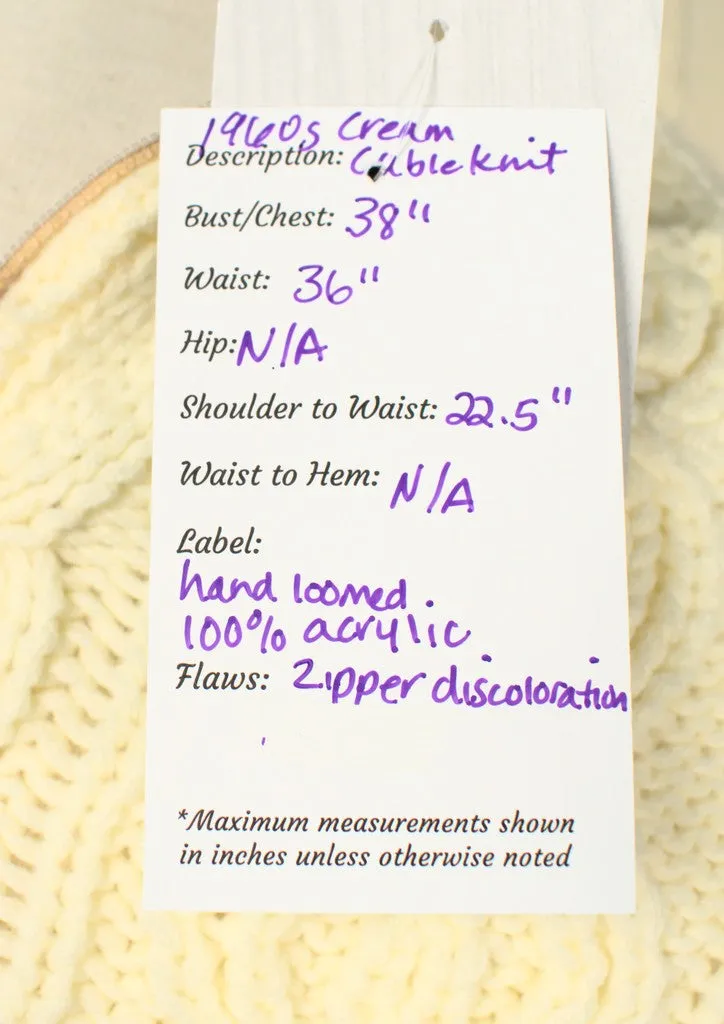 1960s Cream
Description: Cableknit
Bust/Chest: 38"
Waist: 36"
Hip: N/A
Shoulder to Waist: 22.5"
Waist to Hem: N/A
Label:
hand loomed.
100% acrylic
Flaws: Zipper discoloration
*Maximum measurements shown
in inches unless otherwise noted